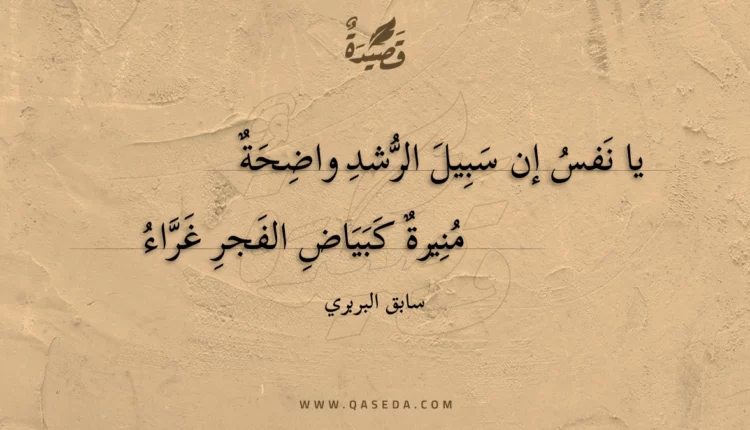 قَصِيدَةٌ
يا نَفسُ إن سَبِيلَ الرُّشدِ واضِحَةٌ
مُنِيرةٌ كَبَيَاضِ الفَجرِ غَرَّاءُ
سابق البربري
WWW.QASEDA.COM